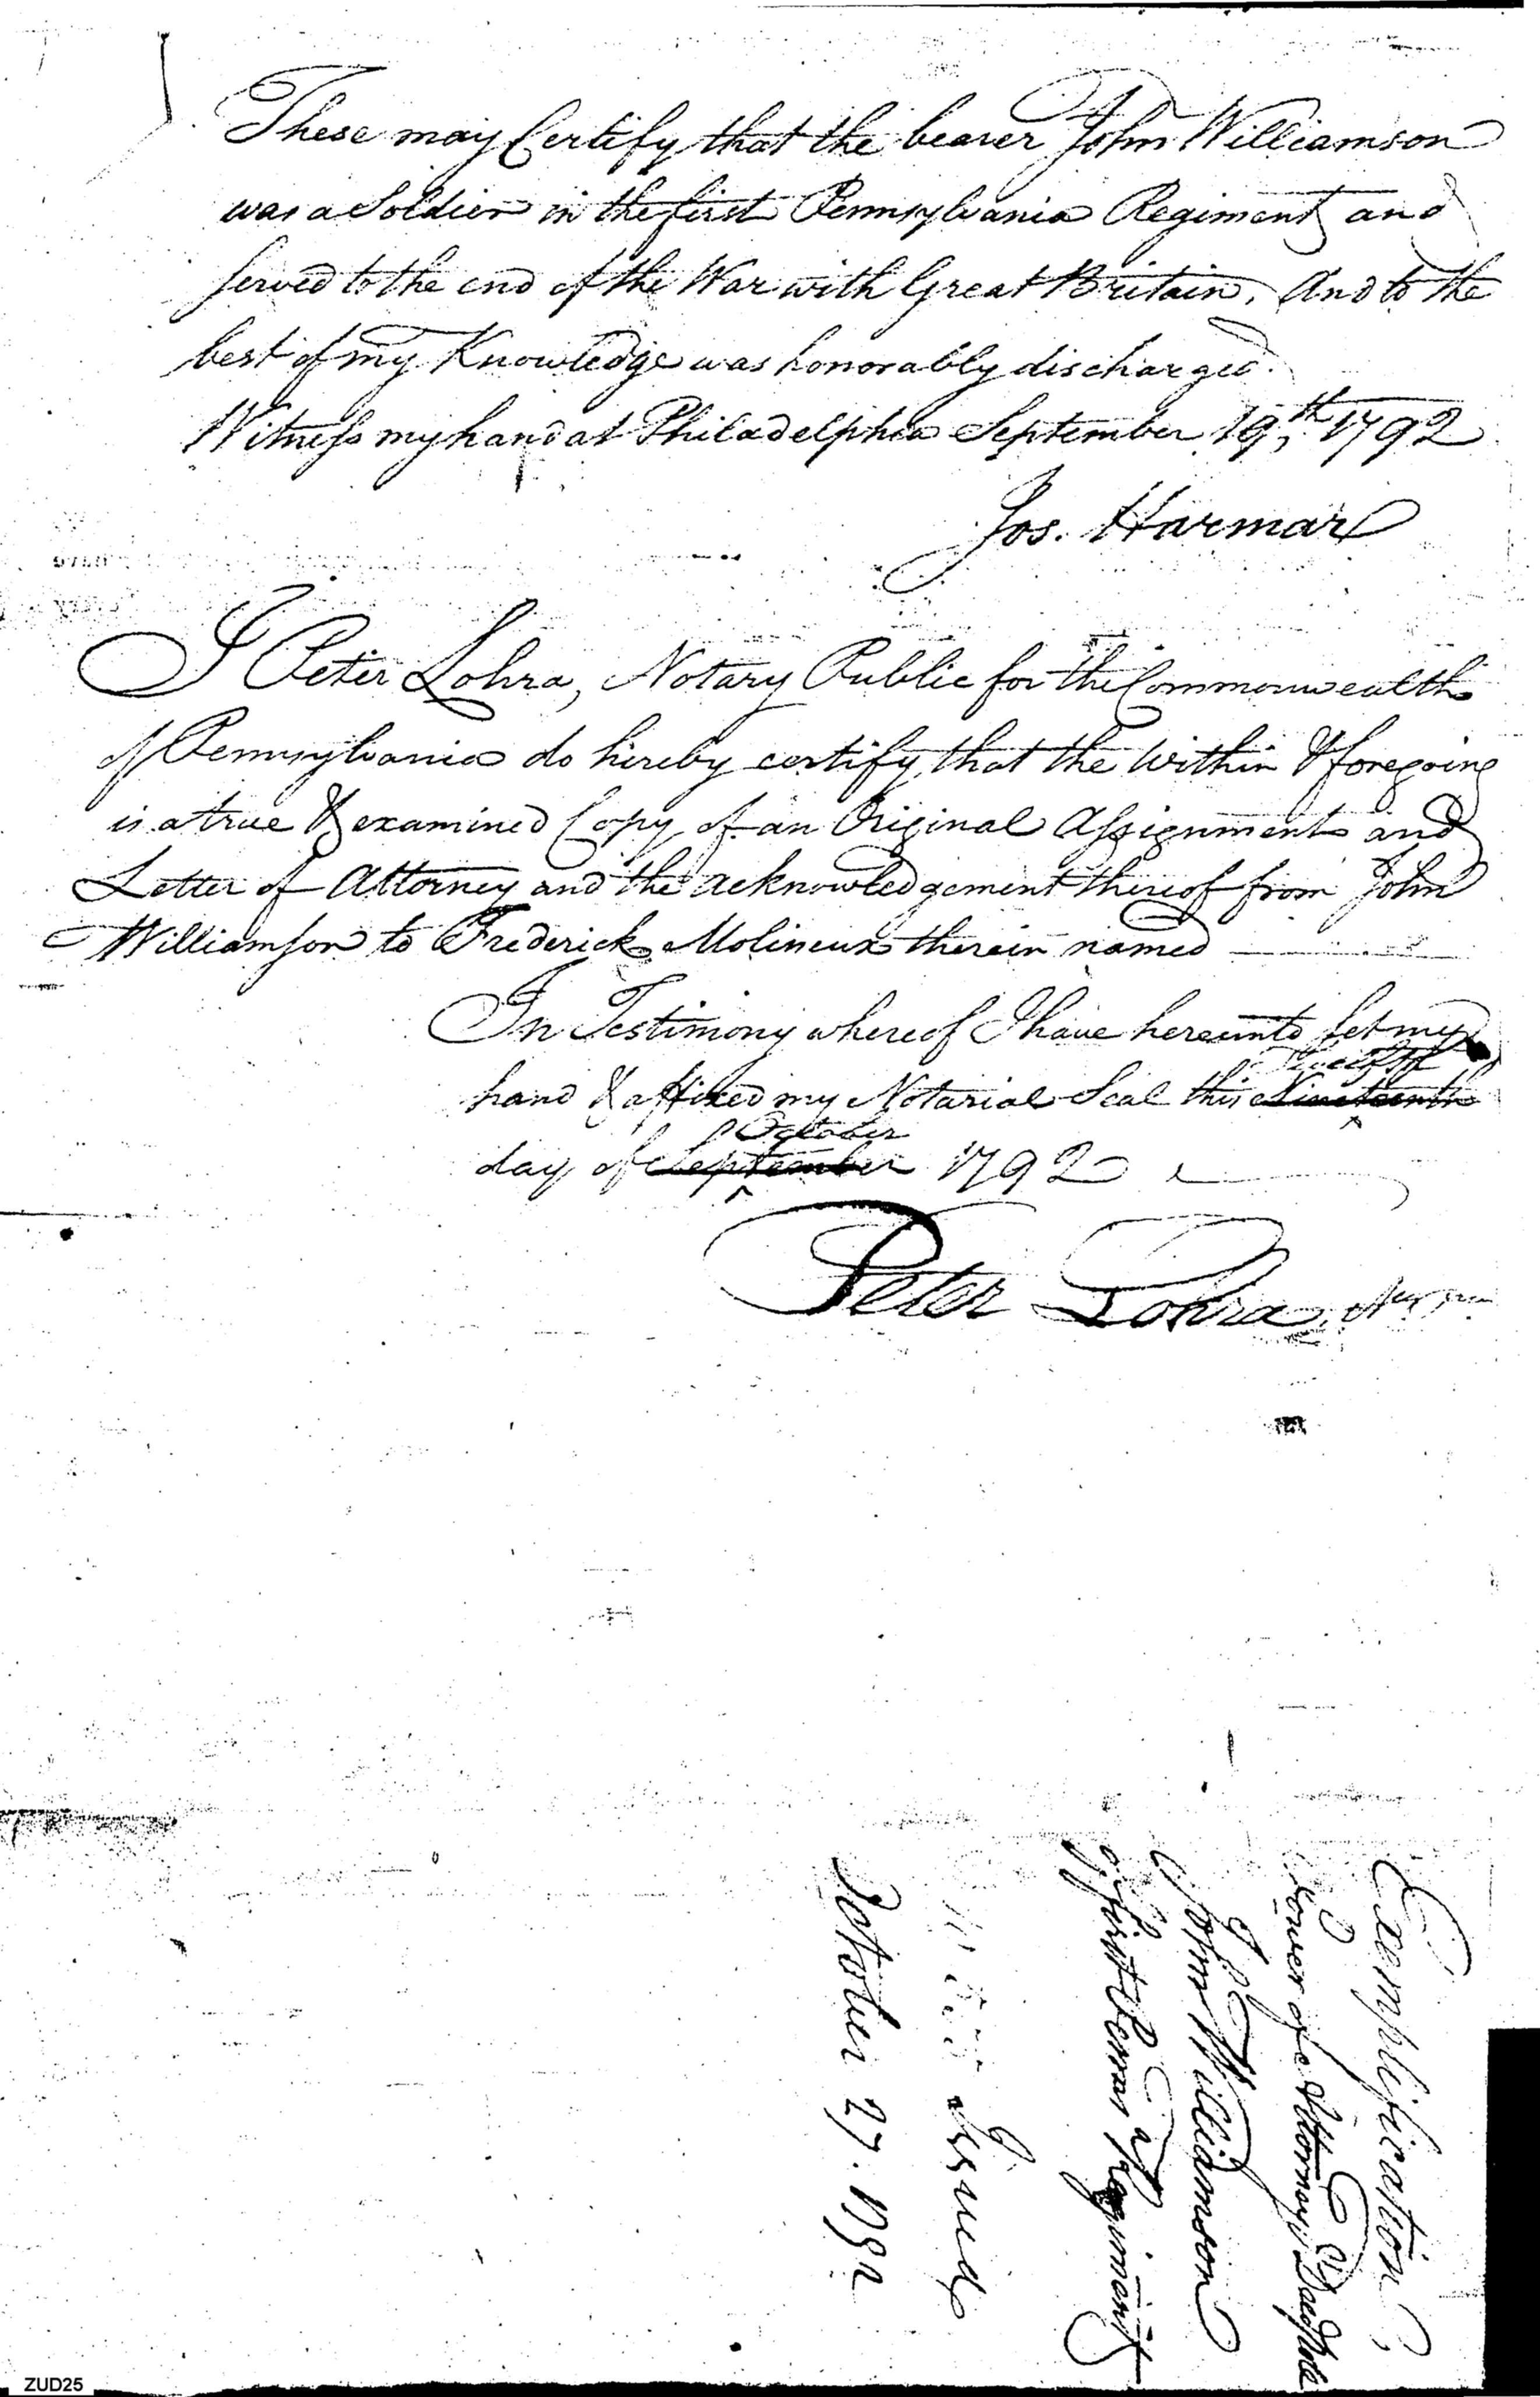 These may Certify that the bearer John Williamson
was a Soldier in the first Pennsylvania Regiment and
served to the end of the War with Great Britain, And to the
best of my Knowledge was honorably discharged.
Witness my hand at Philadelphia September 19th, 1792
Jos. Harmar
I Peter Lohra, Notary Public for the Commonwealth
of Pennsylvania do hereby certify, that the within & foregoing
is a true & examined Copy of an Original Assignment and
Letter of Attorney and the acknowledgement thereof from John
Williamson to Frederick Molineux therein named
In Testimony whereof I have hereunto set my
Twelfth
hand & affixed my Notarial Seal this Nineteenth
October
day of September 1792
Peter Lohra
Exemplification
Power of Attorney
John Williamson
first Penns Regiment
Issued
October 27. 1792
ZUD25